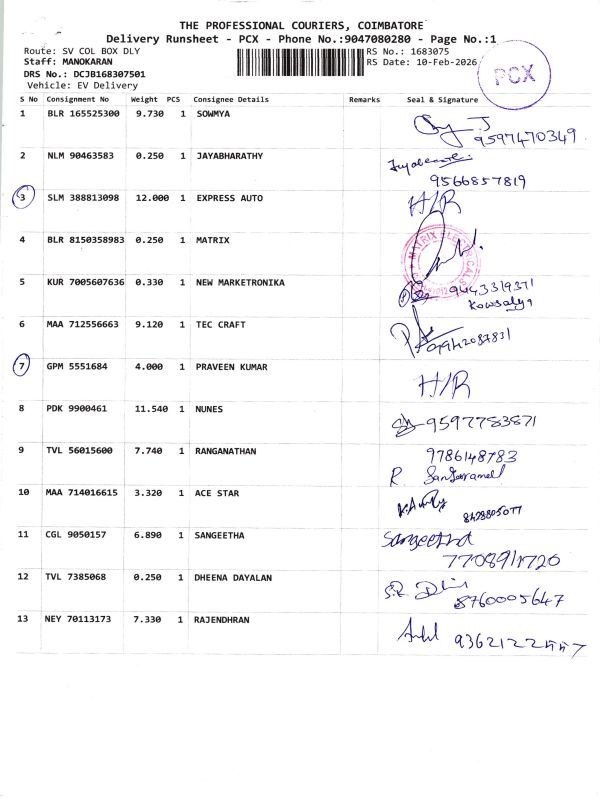 THE PROFESSIONAL COURIERS, COIMBATORE
Delivery Runsheet - PCX - Phone No.:9047080280 - Page No.:1
Route: SV COL BOX DLY RS No.: 1683075
Staff: MANOKARAN RS Date: 10-Feb-2026
DRS No.: DCJB168307501
Vehicle: EV Delivery
PCX
S No Consignment No Weight PCS Consignee Details Remarks Seal & Signature
1 BLR 165525300 9.730 1 SOWMYA
9597470349
2 NLM 90463583 0.250 1 JAYABHARATHY
9566857819
3 SLM 388813098 12.000 1 EXPRESS AUTO H/R
4 BLR 8150358983 0.250 1 MATRIX
MATRIX
5 KUR 7005607636 0.330 1 NEW MARKETRONIKA 9443319371
Kowsalya
6 MAA 712556663 9.120 1 TEC CRAFT
7 GPM 5551684 4.000 1 PRAVEEN KUMAR H/R
8 PDK 9900461 11.540 1 NUNES 9597783871
9 TVL 56015600 7.740 1 RANGANATHAN 9786148783
R.
10 MAA 714016615 3.320 1 ACE STAR
11 CGL 9050157 6.890 1 SANGEETHA Sangeetha
12 TVL 7385068 0.250 1 DHEENA DAYALAN
8760005647
13 NEY 70113173 7.330 1 RAJENDHRAN